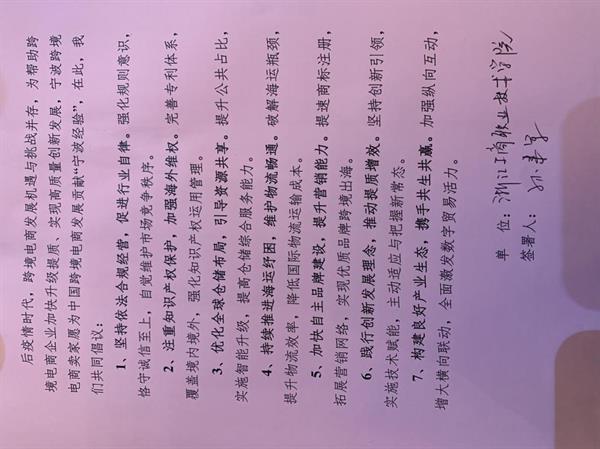 后疫情时代，跨境电商发展机遇与挑战并存，为帮助跨
境电商企业加快升级提质、实现高质量创新发展，宁波跨境
电商卖家愿为中国跨境电商发展贡献“宁波经验”，在此，我
们共同倡议：
1、坚持依法合规经营，促进行业自律。强化规则意识，
恪守诚信至上，自觉维护市场竞争秩序。
2、注重知识产权保护，加强海外维权。完善专利体系，
覆盖境内境外，强化知识产权运用管理。
3、优化全球仓储布局，引导资源共享。提升公共占比，
实施智能升级，提高仓储综合服务能力。
4、持续推进海运纾困，维护物流畅通。破解海运瓶颈，
提升物流效率，降低国际物流运输成本。
5、加快自主品牌建设，提升营销能力。提速商标注册，
拓展营销网络，实现优质品牌跨境出海。
6、践行创新发展理念，推动提质增效。坚持创新引领，
实施技术赋能，主动适应与把握新常态。
7、构建良好产业生态，携手共生共赢。加强纵向互动，
增大横向联动，全面激发数字贸易活力。
单 位：浙江工商职业技术学院
签署人：